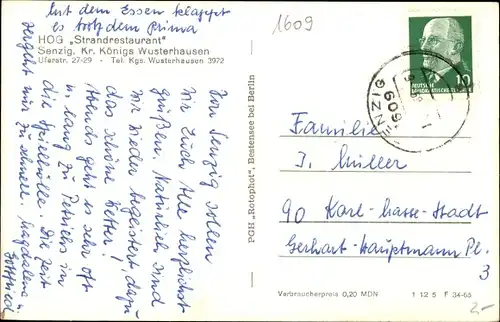 Mit dem Essen klappt
es trotzdem Prima
1609
HOG „Strandrestaurant"
Senzig, Kr. Königs Wusterhausen
Uferstr. 27-29 - Tel. Kgs. Wusterhausen 3972
Von Senzig sollen
wir Euch alle herzlichst
grüßen. Natürlich sind
wir wieder begeistert, dazu
das schöne Wetter!
Abends geht es sehr oft
lang zu
die Spielhölle. Die Zeit
vergeht nur zu schnell. Magdalena
PGH „Rotophot", Bestensee bei Berlin
10
DEUTSCHE
DEMOKRATISCHE
SENZIG
1609
Familie
J. Müller
90 Karl-Marx-Stadt
Gerhart-Hauptmann Pl.
3
Verbraucherpreis 0,20 MDN
1 12 5 F 34-65
2,-